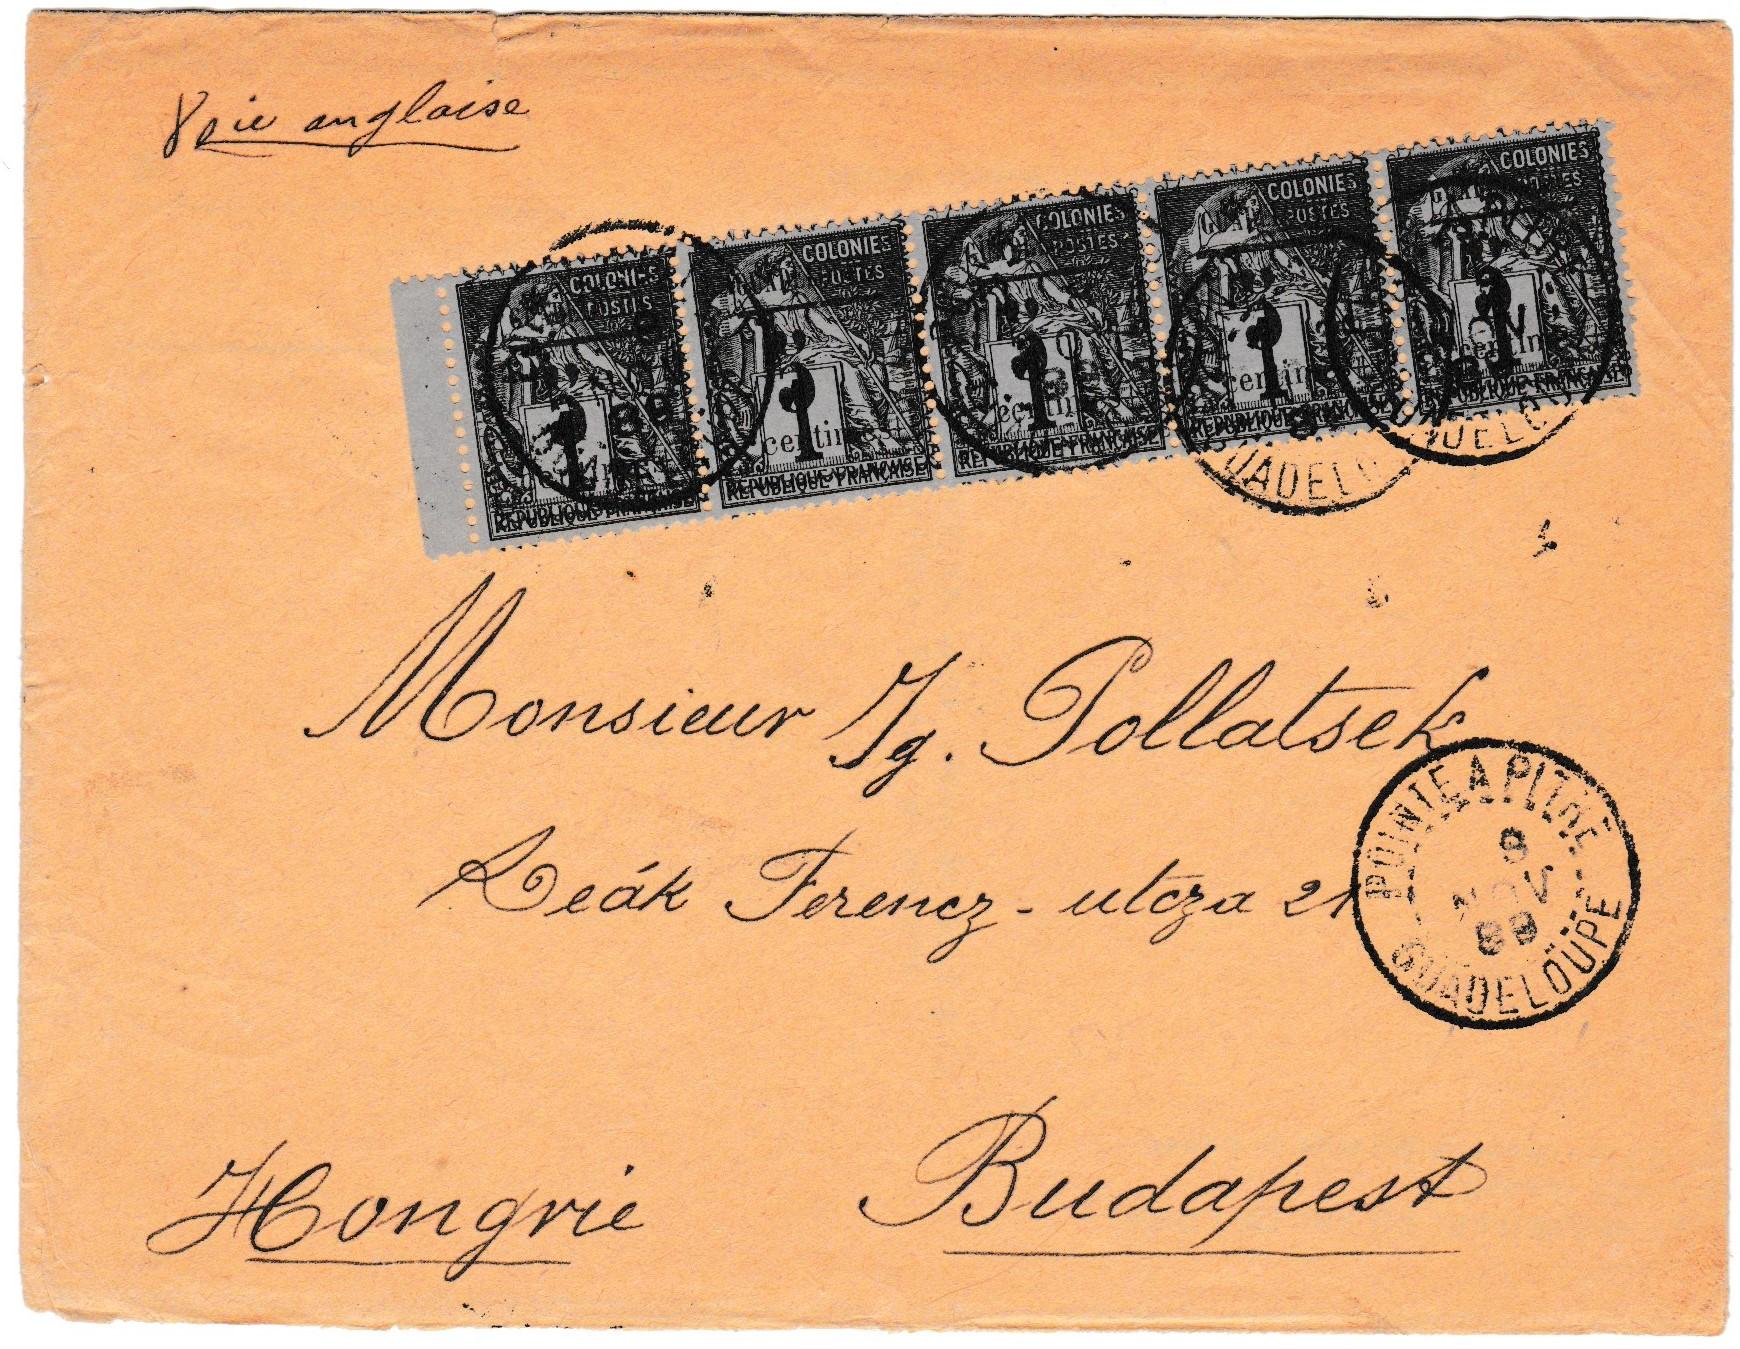 Voie anglaise
COLONIES COLONIES COLONIES COLONIES COLONIES
POSTES POSTES POSTES POSTES POSTES
1 1 1 1 1
centime centime centime centime
REPUBLIQUE FRANÇAISE REPUBLIQUE FRANÇAISE REPUBLIQUE FRANÇAISE REPUBLIQUE FRANÇAISE REPUBLIQUE FRANÇAISE
GUADELOUPE GUADELOUPE
Monsieur Ig. Pollatsek
Deák Ferencz-utcza 21
POINTE A PITRE
8
NOV
89
GUADELOUPE
Hongrie Budapest